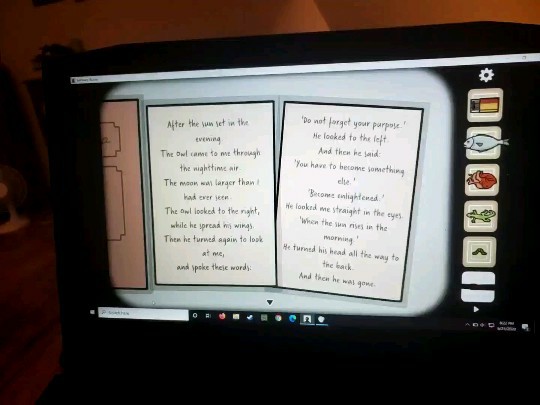 After the sun set in the
evening.
The Owl came to me through
the nighttime air.
The moon was larger than I
had ever seen.
The Owl looked to the right,
while he spread his wings.
Then he turned again to look
at me,
and spoke these words:
'Do not forget your purpose.'
He looked to the left.
And then he said:
'You have to become something
else.'
'Become enlightened.'
He looked me straight in the eyes.
'When the sun rises in the
morning.'
He turned his head all the way to
the back.
And then he was gone.